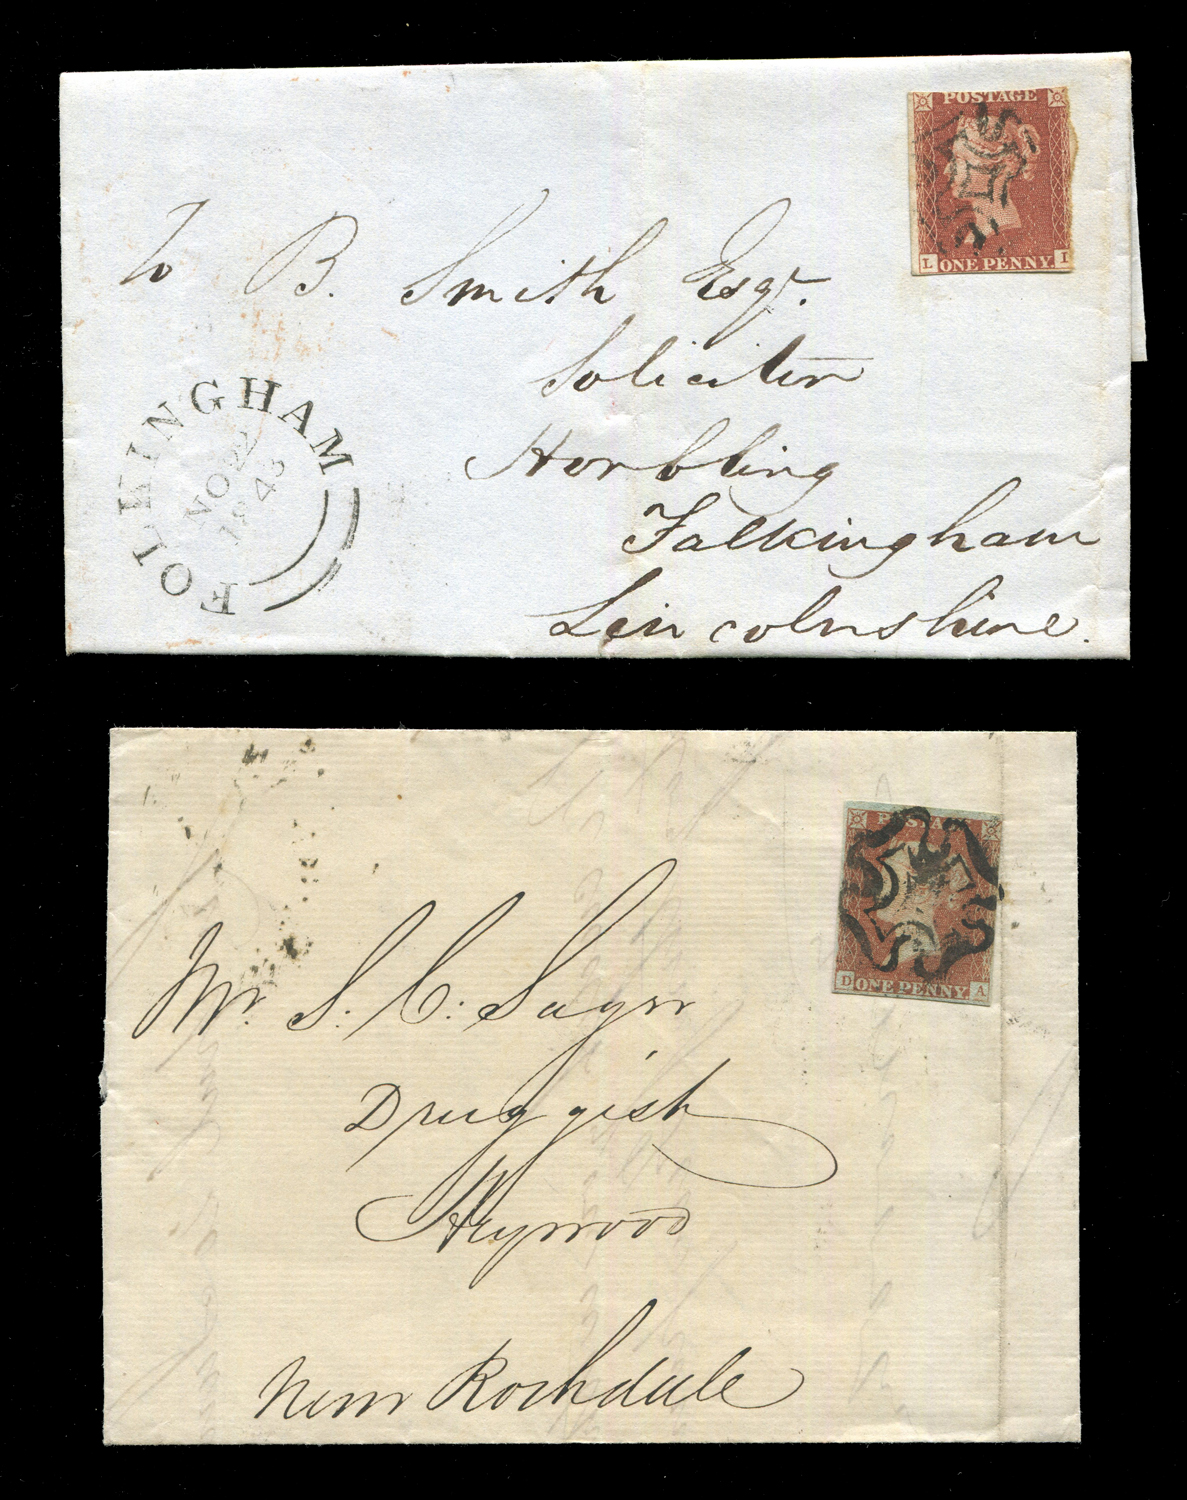 POSTAGE
L ONE PENNY. I
To B. Smith Esqr.
Soliciter
Horbling
Falkingham
Lincolnshire.
FOLKINGHAM
NO 22
1843
POSTAGE
D ONE PENNY A
Mr. S. C. Sayer
Druggist
Heywood
Near Rochdale